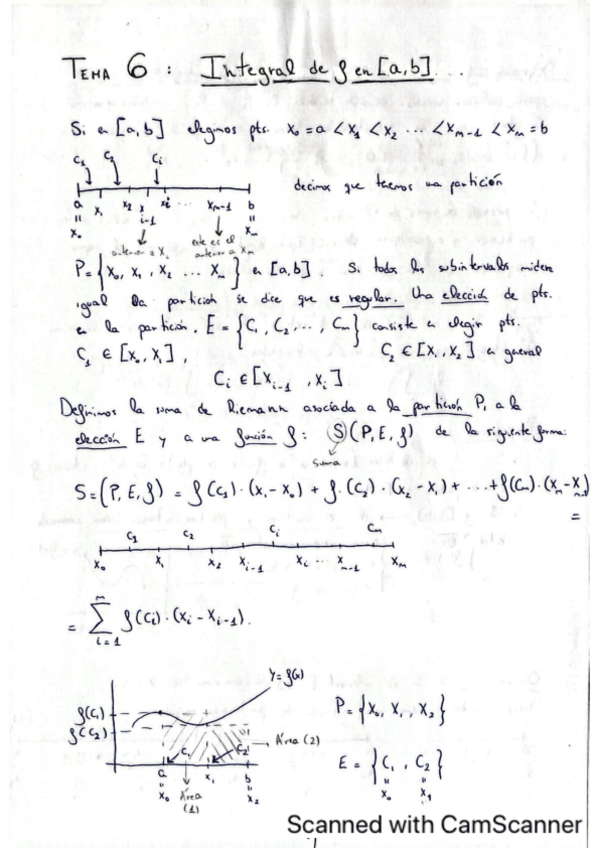 TEMA 6 : Integral de f en [a,b]
Si en [a,b] elegimos pts. x₀ = a < x₁ < x₂ ... < xₘ₋₁ < xₘ = b
C₁ C₂ Cᵢ
decimos que tenemos una partición
a x₁ x₂ x i-1 xᵢ ... xₘ₋₁ b
" "
x₀ xₘ
anterior a xᵢ este es el anterior a xₘ
P = {x₀, x₁, x₂ ... xₘ} en [a,b]. Si todos los subintervalos miden
igual la partición se dice que es regular. Una elección de pts.
en la partición, E = {C₁, C₂, ..., Cₘ} consiste en elegir pts.
C₁ ∈ [x₀, x₁], C₂ ∈ [x₁, x₂] en general
Cᵢ ∈ [xᵢ₋₁, xᵢ]
Definimos la suma de Riemann asociada a la partición P, a la
elección E y a una función f: S(P, E, f) de la siguiente forma:
suma
S = (P, E, f) = f(C₁)·(x₁-x₀) + f·(C₂)·(x₂-x₁) + ... + f(Cₘ)·(xₘ-xₘ₋₁)
=
C₁ C₂ Cᵢ Cₘ
x₀ x₁ x₂ xᵢ₋₁ xᵢ ... xₘ₋₁ xₘ
= ∑ᵢ₌₁ᵐ f(Cᵢ)·(xᵢ - xᵢ₋₁).
y = f(x)
f(C₁)
f(C₂)
P = {x₀, x₁, x₂}
Área (2)
C₁ C₂
E = {C₁, C₂}
a x₁ b
" "
x₀ x₂
Área (1)
" "
x₀ x₁
Scanned with CamScanner